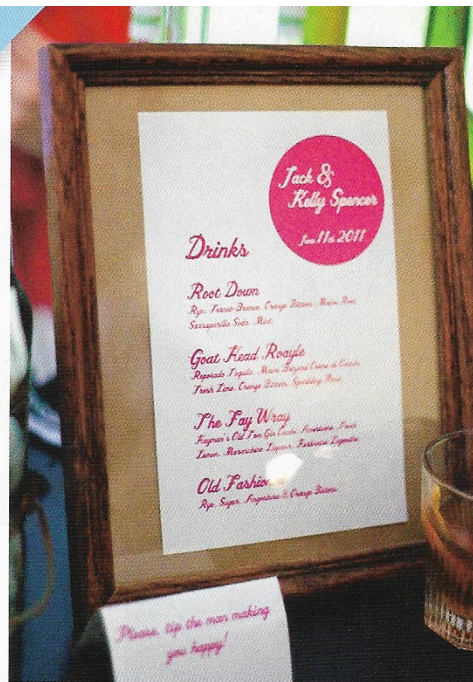 Jack &
Kelly Spencer
11th 2011
Drinks
Root Down
Rye, Fernet-Branca, Orange Bitters, Root
Sarsaparilla Soda, Mint
Goat Head Roayle
Reposado Tequila, Crème de Cassis,
Fresh Lime, Orange Bitters, Sparkling
The Fay Wray
Hayman's Old Tom Gin, Fresh
Lemon, Maraschino Liqueur,
Old Fashion
Rye, Sugar, Angostura & Orange Bitters
Please, tip the man making
you happy!